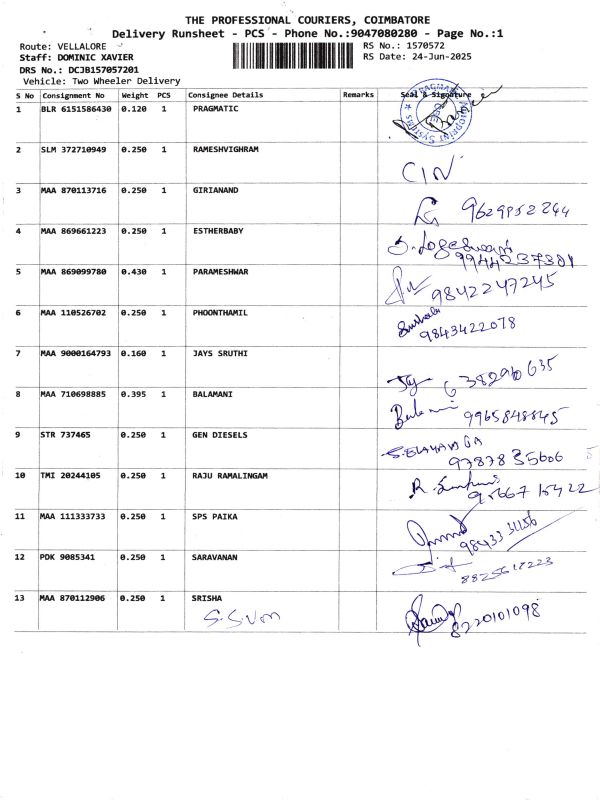 THE PROFESSIONAL COURIERS, COIMBATORE
Delivery Runsheet - PCS - Phone No.:9047080280 - Page No.:1
Route: VELLALORE
RS No.: 1570572
Staff: DOMINIC XAVIER
RS Date: 24-Jun-2025
DRS No.: DCJB157057201
Vehicle: Two Wheeler Delivery
S No Consignment No Weight PCS Consignee Details Remarks Seal & Signature
1 BLR 6151586430 0.120 1 PRAGMATIC
2 SLM 372710949 0.250 1 RAMESHVIGHRAM
CIN
3 MAA 870113716 0.250 1 GIRIANAND
9629952244
4 MAA 869661223 0.250 1 ESTHERBABY
S. Logeshwari
9944237301
5 MAA 869099780 0.430 1 PARAMESHWAR
9842247245
6 MAA 110526702 0.250 1 PHOONTHAMIL
9843422078
7 MAA 9000164793 0.160 1 JAYS SRUTHI
8 MAA 710698885 0.395 1 BALAMANI
9965848845
9 STR 737465 0.250 1 GEN DIESELS
9787835606
10 TMI 20244105 0.250 1 RAJU RAMALINGAM
11 MAA 111333733 0.250 1 SPS PAIKA
12 PDK 9085341 0.250 1 SARAVANAN
13 MAA 870112906 0.250 1 SRISHA
8220101098